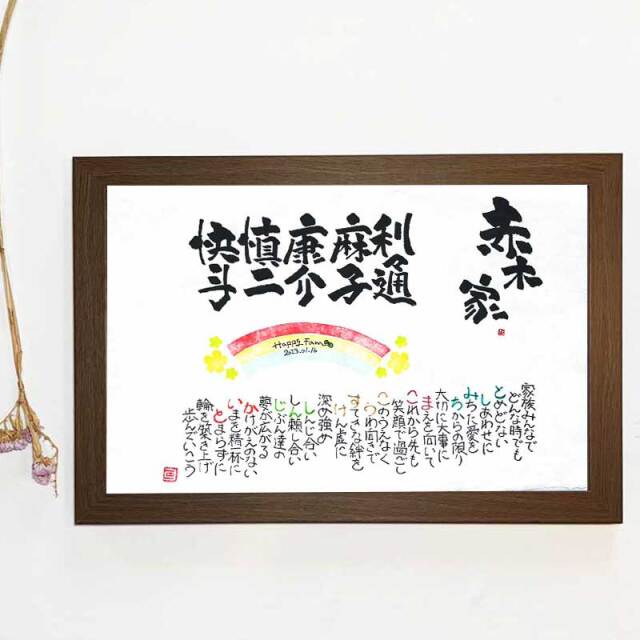 赤木
家
利通
麻子
康介
慎二
快斗
Happy Fam
2023.01.16
家族みんなで
どんな時でも
とめどない
しあわせに
みちた愛を
ちからの限り
大切に大事に
まえを向いて
これから先も
笑顔で過ごし
このうえなく
うわ向きで
すてきな絆を
けん虚に
深め強め
しんじ合い
しん頼し合い
じぶん達の
夢が広がる
かけがえのない
いまを精一杯に
とまらずに
輪を築き上げ
歩んでいこう